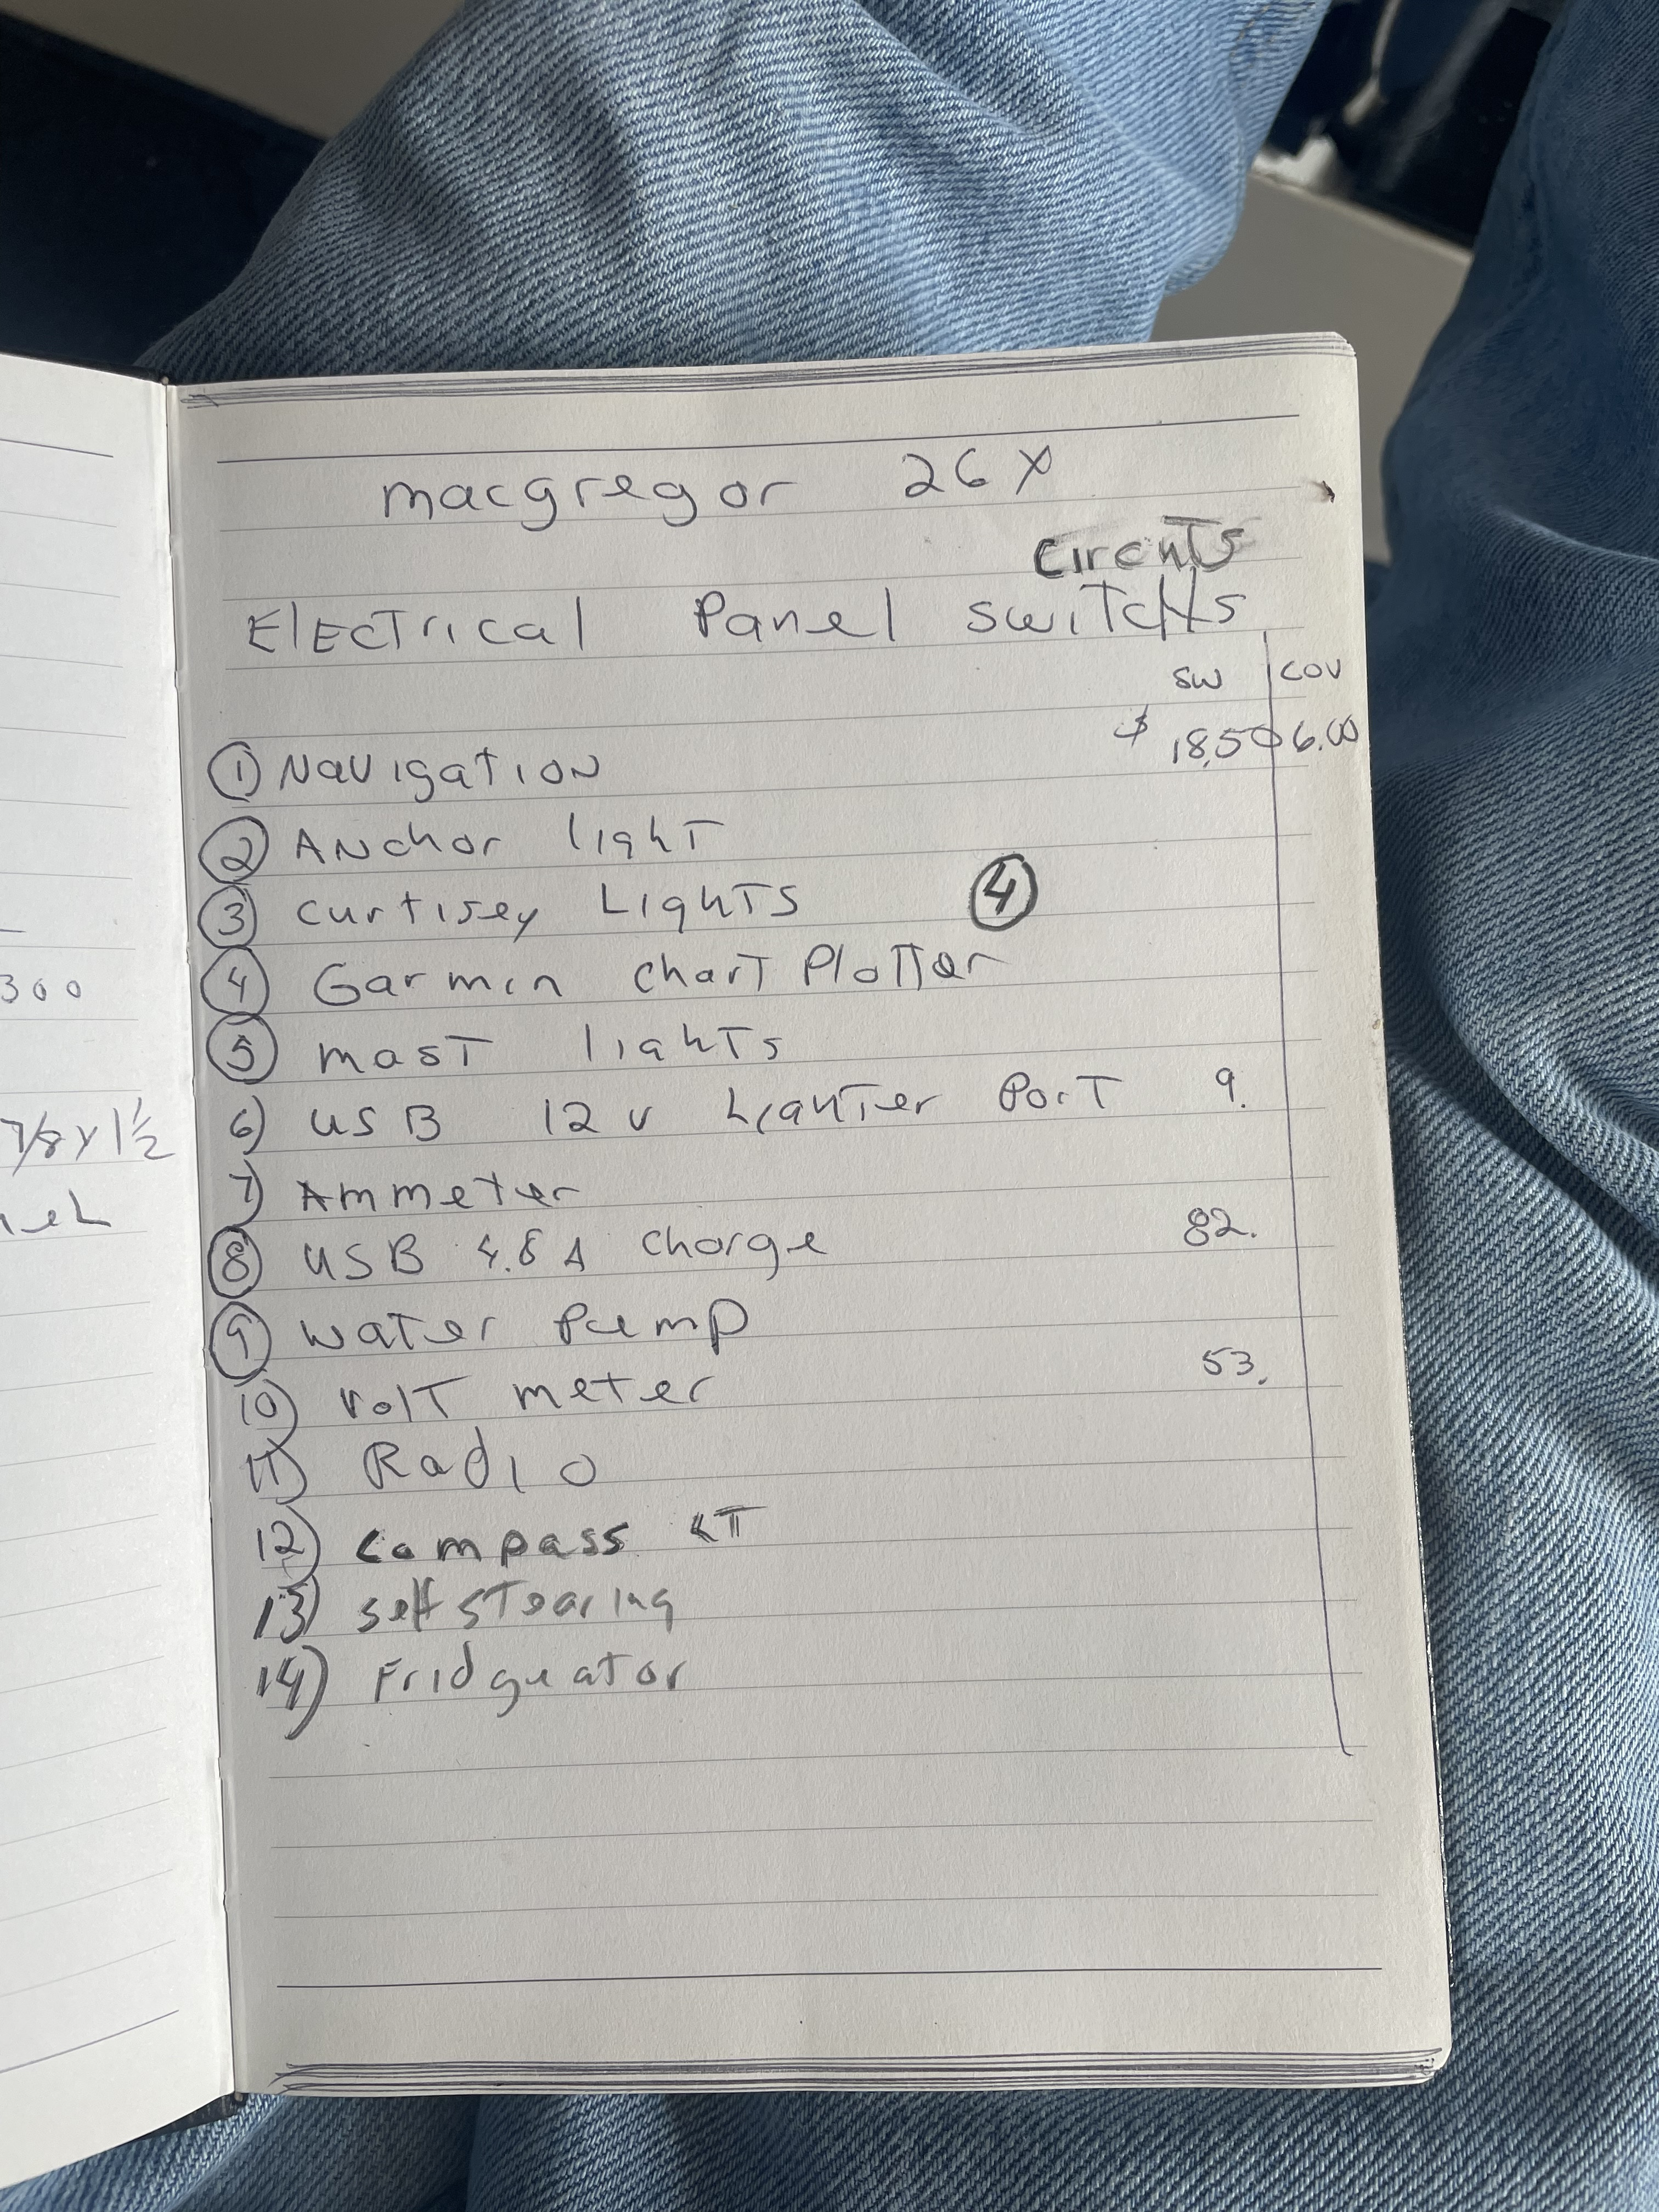 300
7/8 x 1 1/2
macgregor 26 X
CircuTs
ElEcTrical Panel switcHs
SW COV
$ 18.50 6.00
1 Navigation
2 Anchor lighT
3 curtisey LighTS
4
4 Garmin charT PloTTer
5 masT lighTs
6) USB 12 v LighTer PorT 9.
7) Ammeter
8 USB 4.8 A charge 82.
9 waTer Pump
10) volT meter 53.
11) Radio
12) compass LT
13) self sTearing
14) Fridgueator